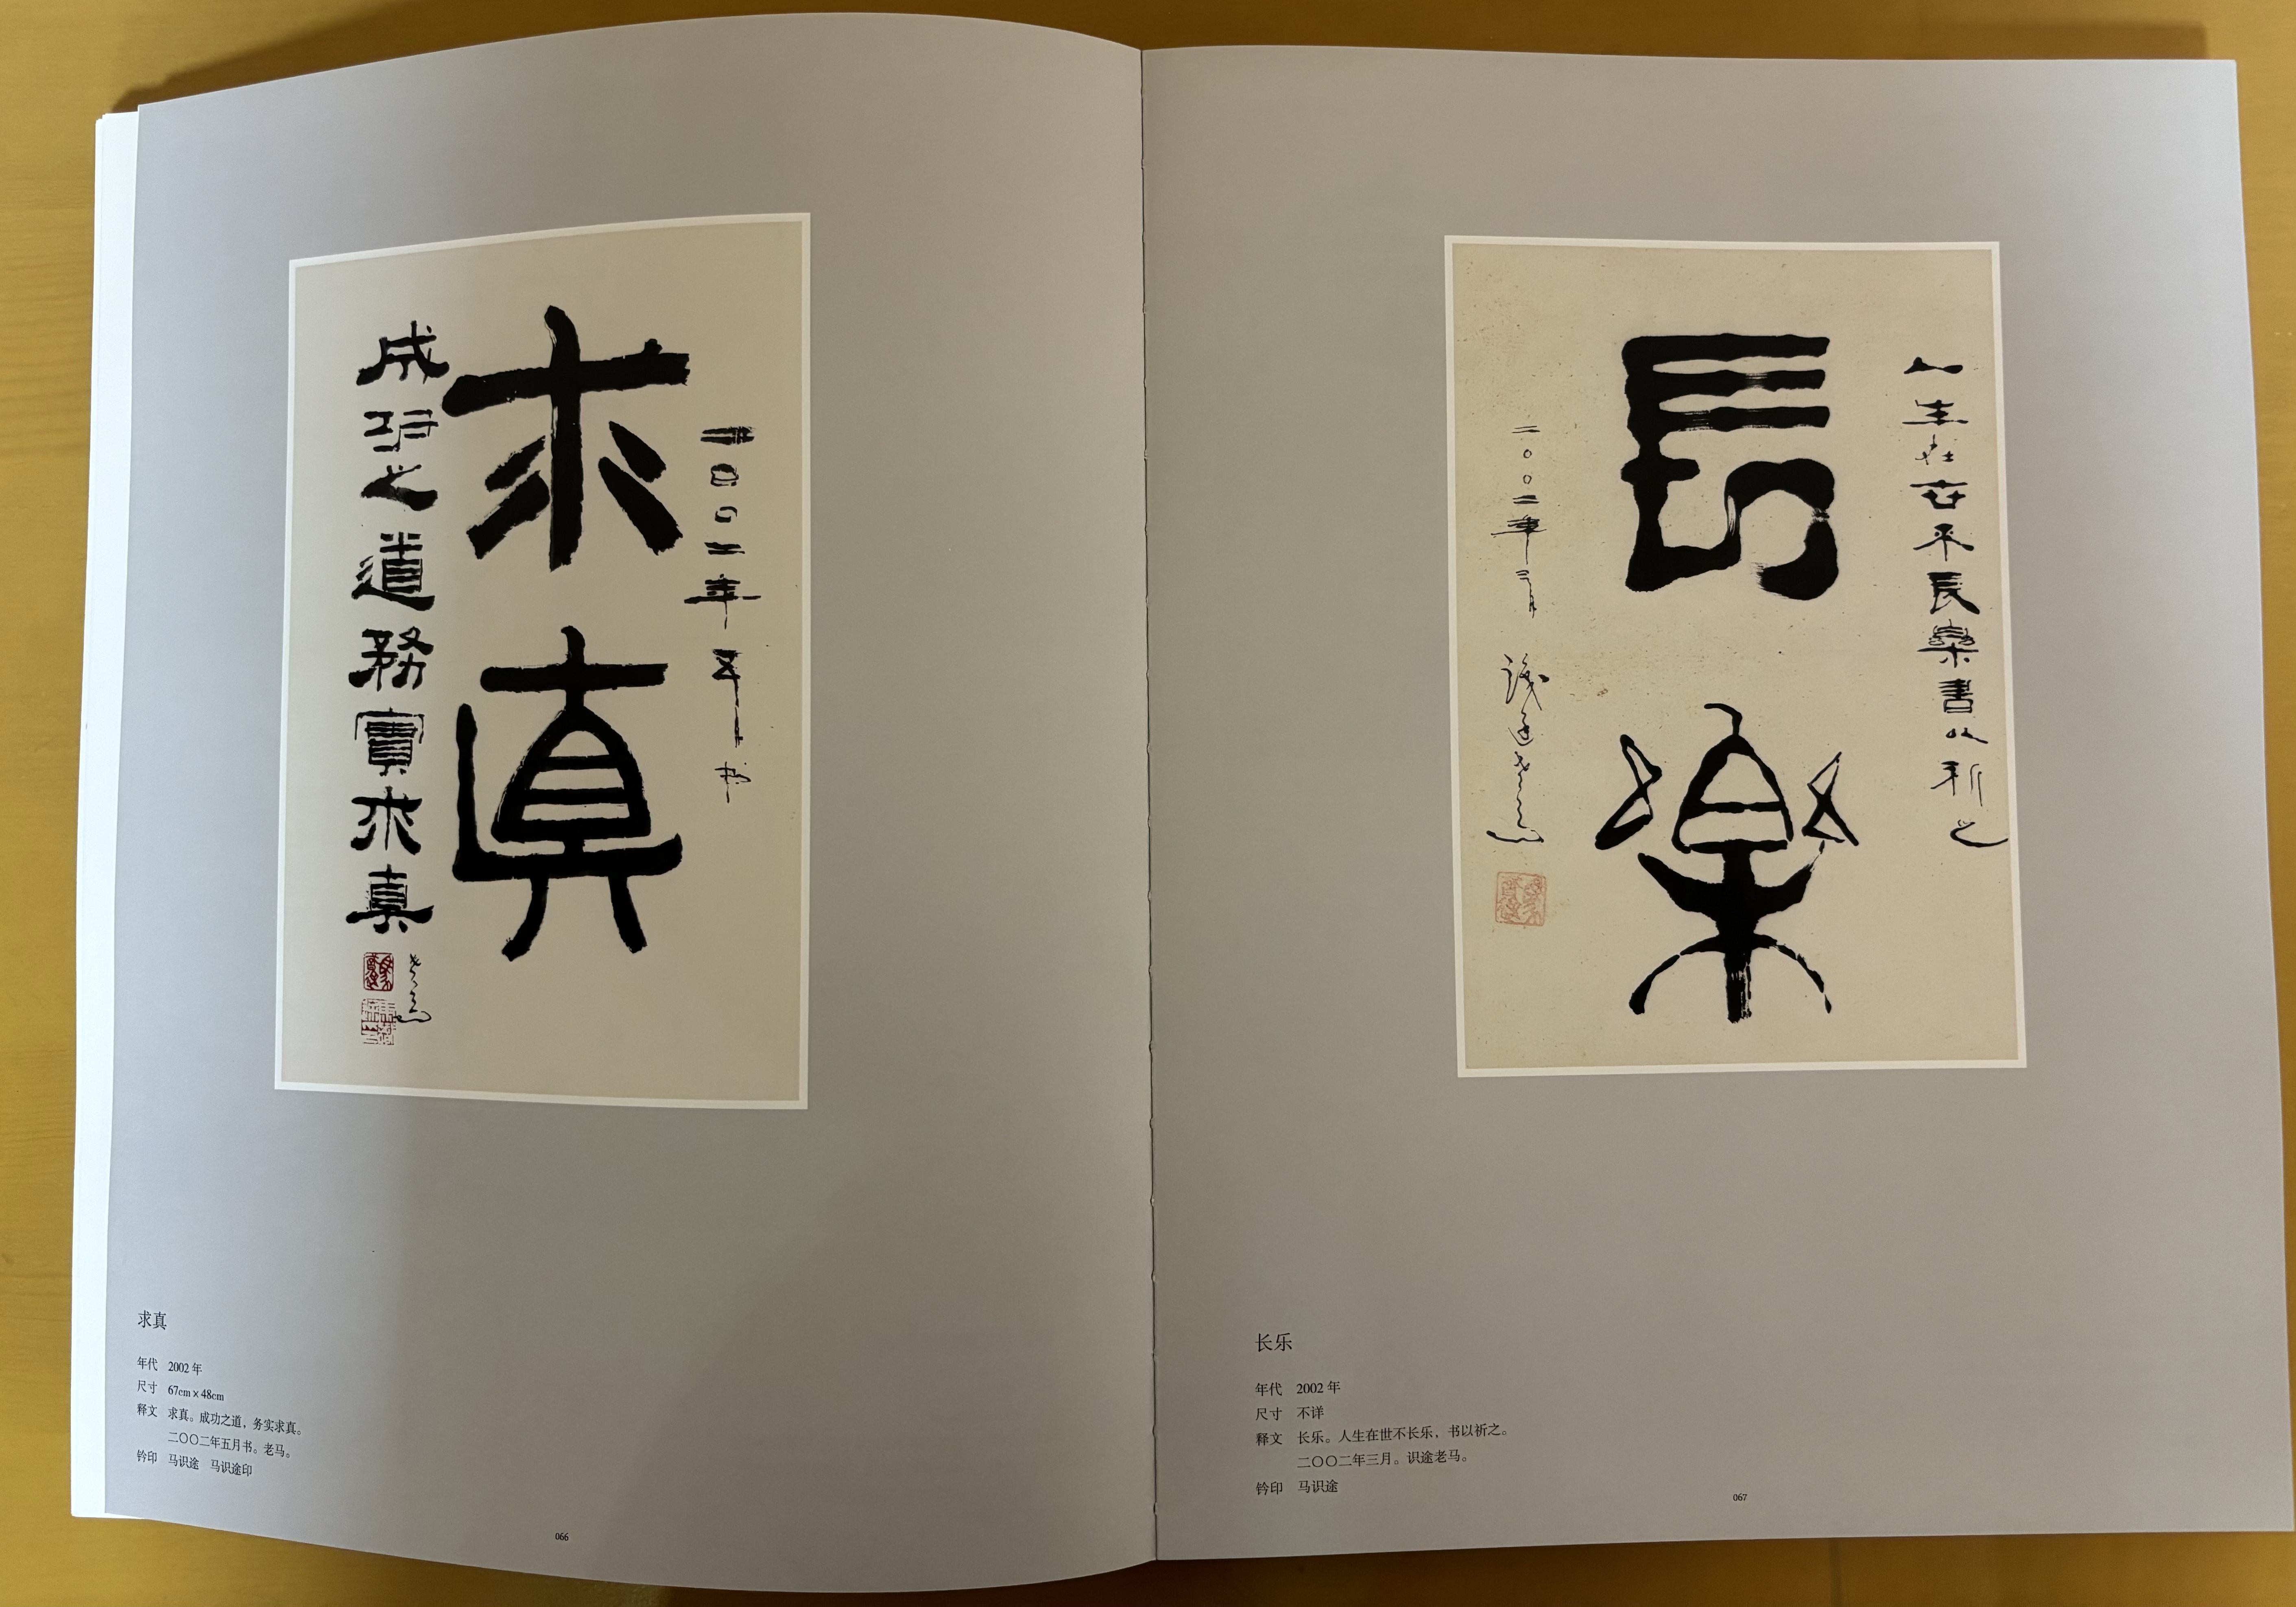 求真
二〇〇二年五月书
成功之道務實求真
老马
求真
年代 2002 年
尺寸 67cm×48cm
释文 求真。成功之道，务实求真。
二〇〇二年五月书。老马。
钤印 马识途 马识途印
066
人生在世不長樂書以祈之
長樂
二〇〇二年三月
识途老马
长乐
年代 2002 年
尺寸 不详
释文 长乐。人生在世不长乐，书以祈之。
二〇〇二年三月。识途老马。
钤印 马识途
067